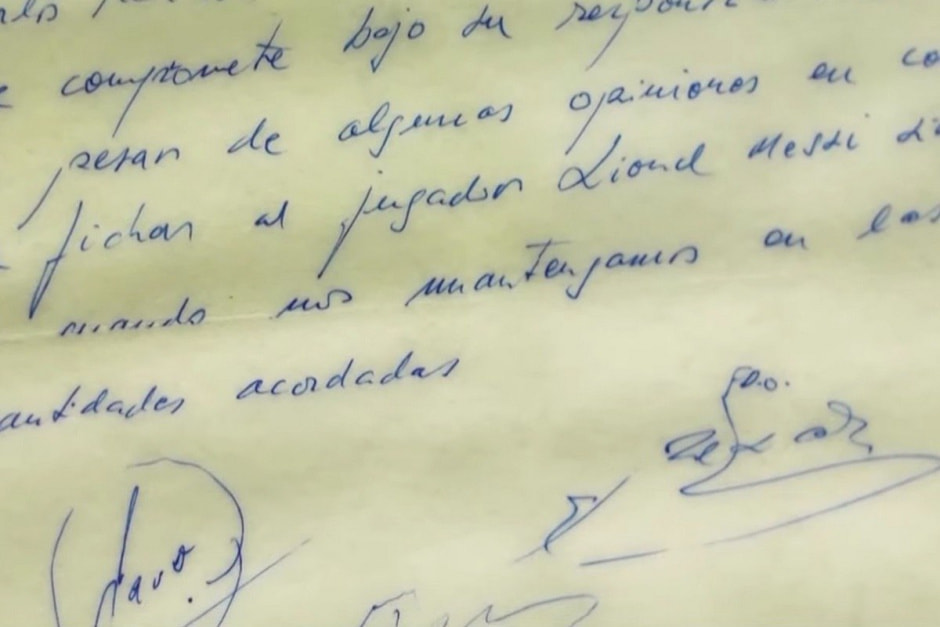 compromete bajo su
pesar de algunas opiniones en co
fichar al jugador Lionel Messi si
cuando nos mantengamos en las
antidades acordadas
Fdo.